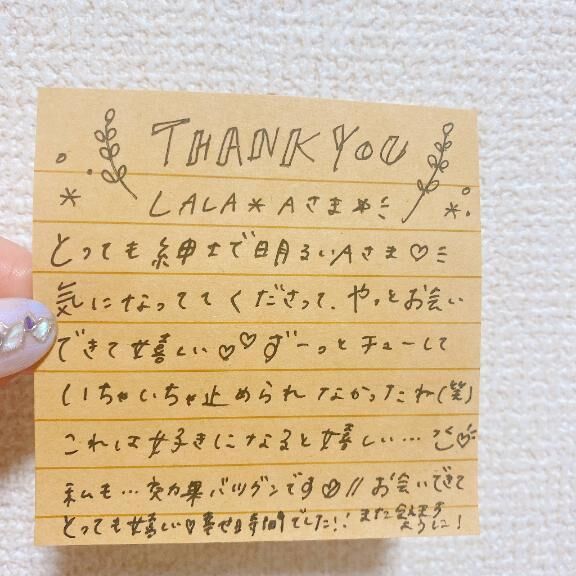 THANK YOU
LALA*Aさま
とっても紳士で明るいAさま♡
気になってて くださって、やっとお会い
できて嬉しい♡♡ずーっと チューして
いちゃいちゃ止められなかったね(笑)
これは好きになると嬉しい…
私も…効果バツグンです♡// お会いできて
とっても嬉しい♡幸せ時間でした!! また会えます
ように!